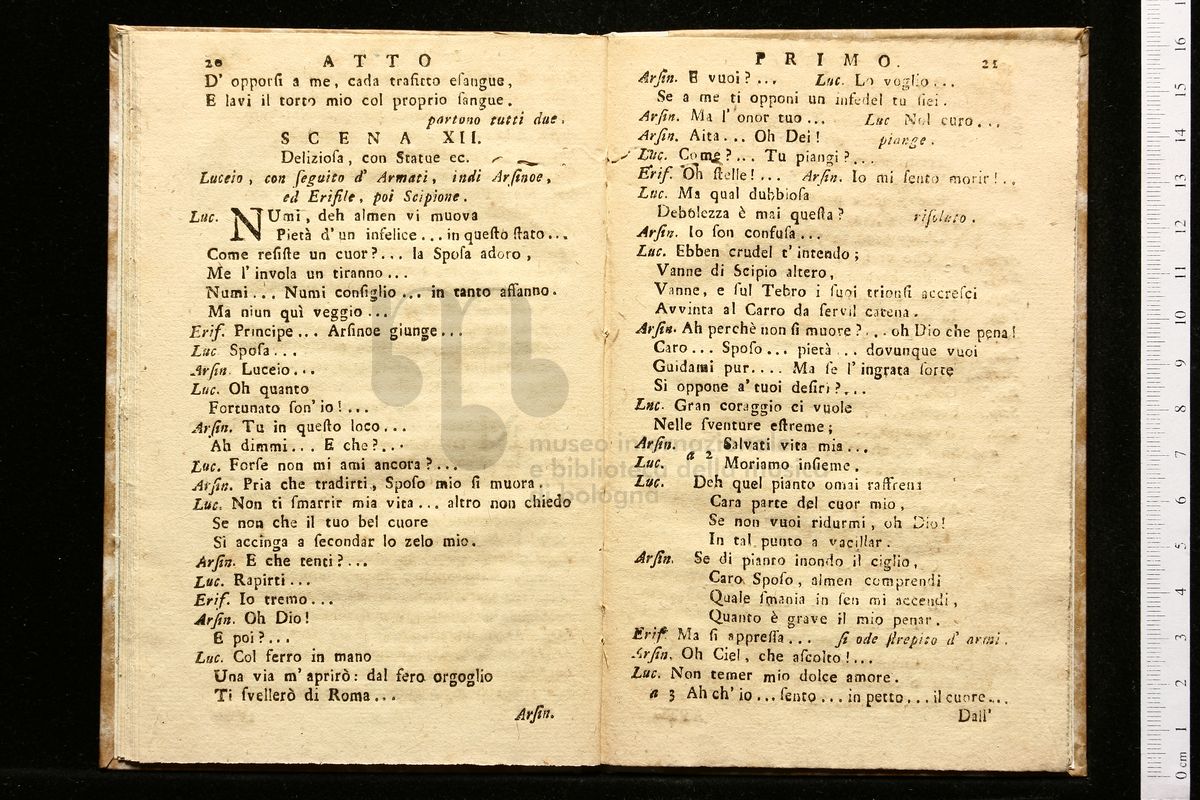 20 ATTO
D' opporſi a me, cada trafitto eſangue,
E lavi il torto mio col proprio ſangue.
partono tutti due.
SCENA XII.
Delizioſa, con Statue ec.
Luceio, con ſeguito d' Armati, indi Arſinoe,
ed Erifile, poi Scipione.
Luc. NUmi, deh almen vi muova
Pietà d' un infelice... in queſto ſtato...
Come reſiſte un cuor?... la Spoſa adoro,
Me l' invola un tiranno...
Numi... Numi conſiglio... in tanto affanno.
Ma niun quì veggio...
Erif. Principe... Arſinoe giunge...
Luc Spoſa...
Arſin. Luceio...
Luc. Oh quanto
Fortunato ſon' io!...
Arſin. Tu in queſto loco...
Ah dimmi... E che?...
Luc. Forſe non mi ami ancora?...
Arſin. Pria che tradirti, Spoſo mio ſi muora.
Luc. Non ti ſmarrir mia vita... altro non chiedo
Se non che il tuo bel cuore
Si accinga a ſecondar lo zelo mio.
Arſin. E che tenti?...
Luc. Rapirti...
Erif. Io tremo...
Arſin. Oh Dio!
E poi?...
Luc. Col ferro in mano
Una via m' aprirò: dal fero orgoglio
Ti ſvellerò di Roma...
Arſin.
PRIMO. 21
Arſin. E vuoi?... Luc. Lo voglio...
Se a me ti opponi un infedel tu ſiei.
Arſin. Ma l' onor tuo... Luc Nol curo...
Arſin. Aita... Oh Dei! piange.
Luc. Come?... Tu piangi?...
Erif. Oh ſtelle!... Arſin. Io mi ſento morir!..
Luc. Ma qual dubbioſa
Debolezza è mai queſta? riſoluto.
Arſin. Io ſon confuſa...
Luc. Ebben crudel t' intendo;
Vanne di Scipio altero,
Vanne, e ſul Tebro i ſuoi trionfi accreſci
Avvinta al Carro da ſervil catena.
Arſin. Ah perchè non ſi muore?... oh Dio che pena!
Caro... Spoſo... pietà... dovunque vuoi
Guidami pur.... Ma ſe l' ingrata ſorte
Si oppone a' tuoi deſiri?...
Luc. Gran coraggio ci vuole
Nelle ſventure eſtreme;
Arſin. Salvati vita mia...
a 2
Luc. Moriamo inſieme.
Luc. Deh quel pianto omai raffrena
Cara parte del cuor mio,
Se non vuoi ridurmi, oh Dio!
In tal punto a vacillar.
Arſin. Se di pianto inondo il ciglio,
Caro Spoſo, almen comprendi
Quale ſmania in ſen mi accendi,
Quanto è grave il mio penar.
Erif Ma ſi appreſſa... ſi ode ſtrepito d' armi.
Arſin. Oh Ciel, che aſcolto!...
Luc. Non temer mio dolce amore.
a 3 Ah ch' io... ſento... in petto... il cuore...
Dall'
museo internazionale
e biblioteca della musica
di bologna
0 cm 1 2 3 4 5 6 7 8 9 10 11 12 13 14 15 16